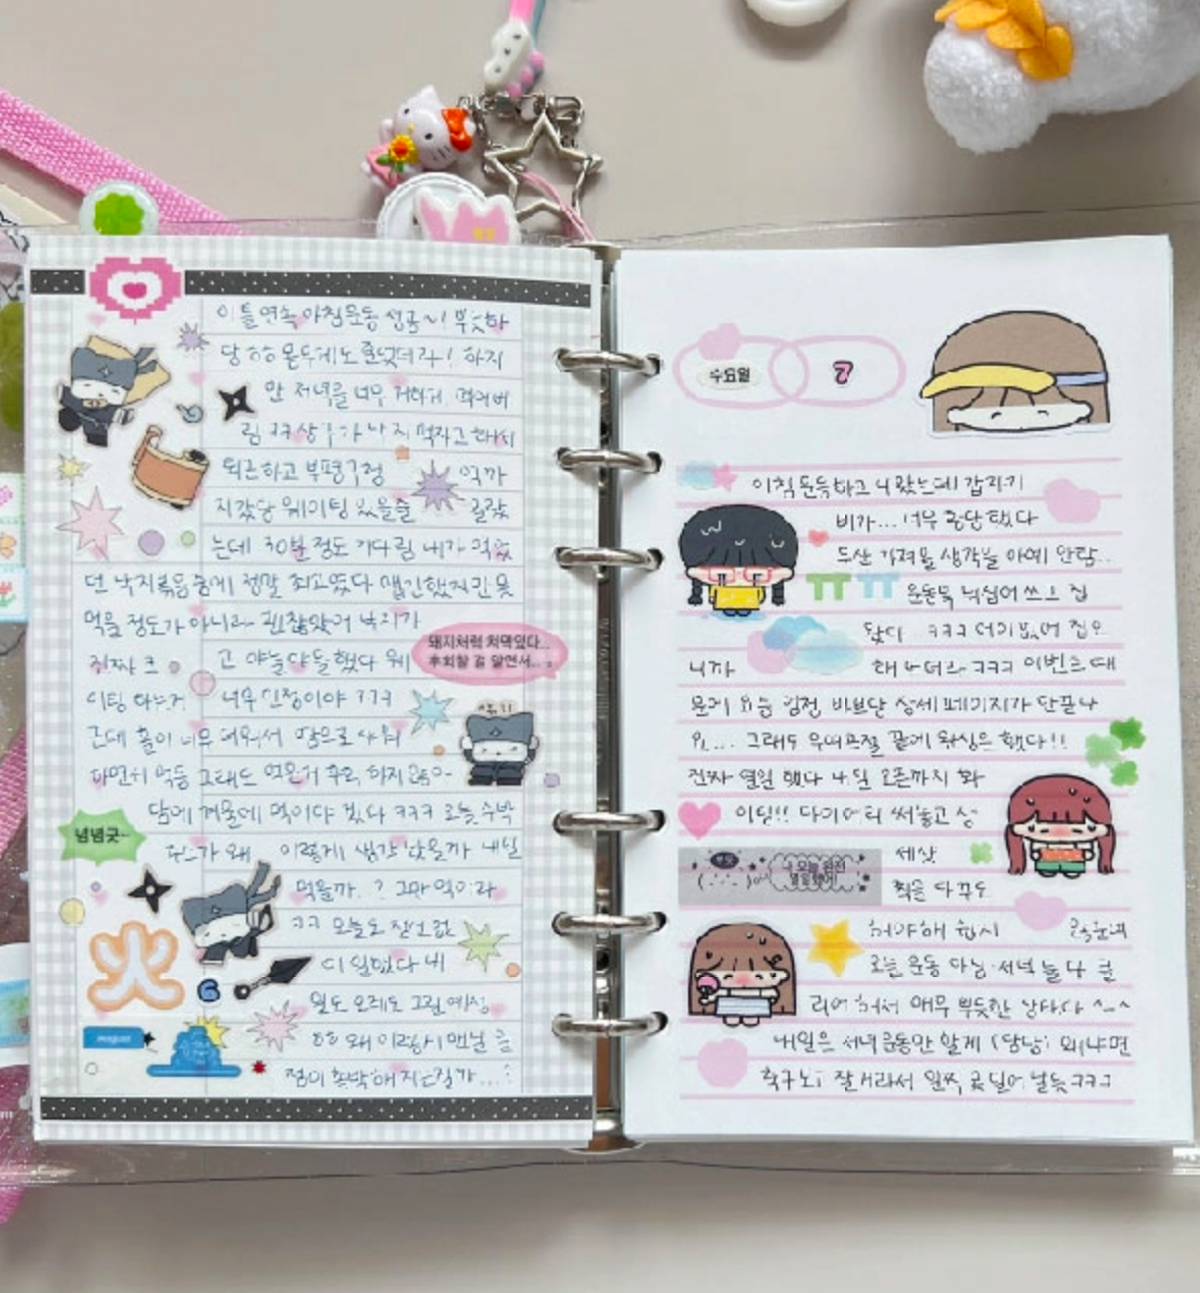 이틀연속 아침운동 성공~! 부듯하
당 ㅎㅎ 몸무게도 줄었더라! 하지
만 저녁을 너무 거하게 먹어버
림 ㅋㅋ 상수가 낙지 먹자고 해서
퇴근하고 부평구청 억까
지갔당 웨이팅 있을줄 알았
는데 30분 정도 기다림 내가 먹었
던 낙지볶음 중에 정말 최고였다 맵긴했지만 못
먹을 정도가 아니라 괜찮았어 낙지가
돼지처럼 처먹있다...
후회할 걸 알면서...
진짜 크고 야들야들했다 웨
이팅 하는거 너무 인정이야 ㅋㅋㅋ
근데 홀이 너무 더워서 땀으로 샤워
하면서 먹음 그래도 먹은거 후회 하지 않아~
담에 겨울에 먹어야 겠다 ㅋㅋㅋ 오늘 수박
념념굿~
주스가 왜 이렇게 생각 났을까 내일
먹을까..? 그만 먹어라
ㅋㅋ 오늘도 잔업 없
이 일했다 내
일도 모레도 그럴 예정
ㅎㅎ 왜 이렇게 맨날 글
火
6
august
점이 촉박해지는걸까...
수요일 7
아침운동하고 나왔는데 갑자기
비가... 너무 황당했다
우산 가져올 생각을 아예 안함..
ㅠㅠ 운동복 뒤집어 쓰고 집
왔다.. ㅋㅋㅋ 어이없어 집오
니까 해 나더라 ㅋㅋㅋ 이벤트때
문에 요즘 김정 바쁘단 상세페이지가 안끝나
요... 그래도 우여곡절 끝에 완성은 했다!!
진짜 열일 했다 내일 오픈까지 화
이팅!! 다이어리 써놓고 상
세샷
찍을 다꾸도
나 오늘 완전
열일했어!
해야해 헙시
오늘 운동 아님·저녁 늘 다 클
리어 해서 매우 뿌듯한 날이다 ^-^
내일은 저녁운동만 할게 (당당) 왜냐면
축구보고 잘거라서 일찍 못 일어 날듯 ㅋㅋㅋ